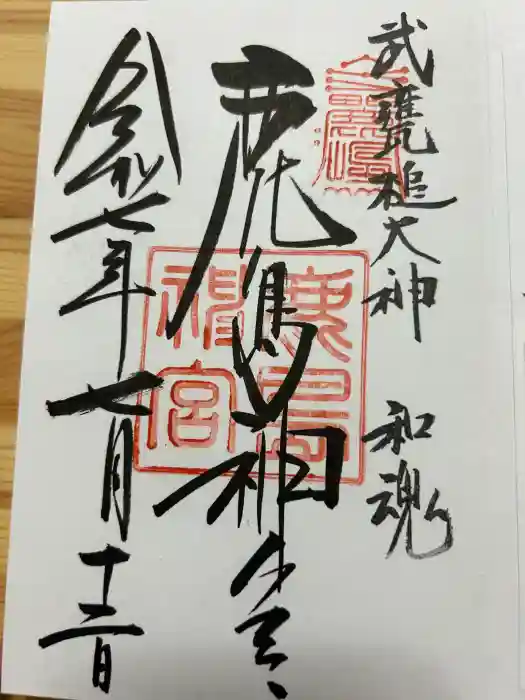 武甕槌大神 和魂
鹿島神宮
令和七年七月十二日
鹿島神宮